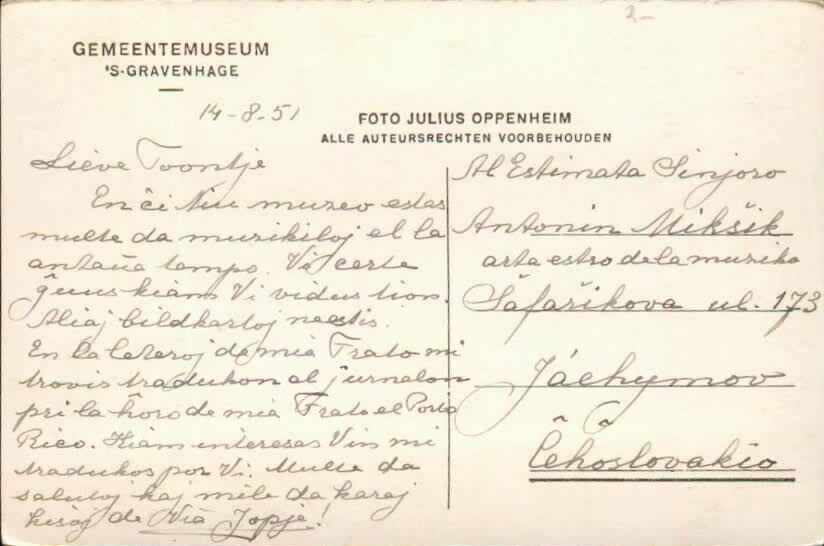 2-
GEMEENTEMUSEUM
'S-GRAVENHAGE
14-8-51
FOTO JULIUS OPPENHEIM
ALLE AUTEURSRECHTEN VOORBEHOUDEN
Liève Toontje
En ĉi tiu muzeo estas
multe da muzikiloj el la
antaŭa tempo. Vi certe
ĝuus kiam Vi vidus tion.
Aliaj bildkartoj neestis.
En la leteroj de mia Frato mi
trovis tradukon al jurnalon
pri la ĥoro de mia Frato el Porto
Rico. Kiam interesas Vin mi
tradukos por Vi. Multe da
salutoj kaj mile da karaj
kisoj de Via Jopje!
Al Estimata Sinjoro
Antonin Mikšik
arta estro de la muziko
Šafařikova ul. 173
Jáchymov
Ĉeĥoslovakio